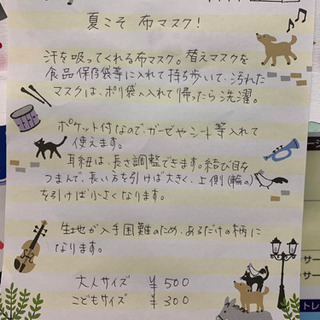 夏こそ 布マスク!
汗を吸ってくれる布マスク。替えマスクを
食品保存袋等に入れて持ち歩いて、汚れた
マスクは、ポリ袋へ入れて帰ったら洗濯。
ポケット付なので、ガーゼやシート等入れて
使えます。
耳紐は、長さ調整できます。結び目を
つまんで、長い方を引けば大きく、上側(輪の)
を引けば小さくなります。
生地が入手困難のため、あるだけの柄に
なります。
大人サイズ ¥500
こどもサイズ ¥300
サー
サー
トレ